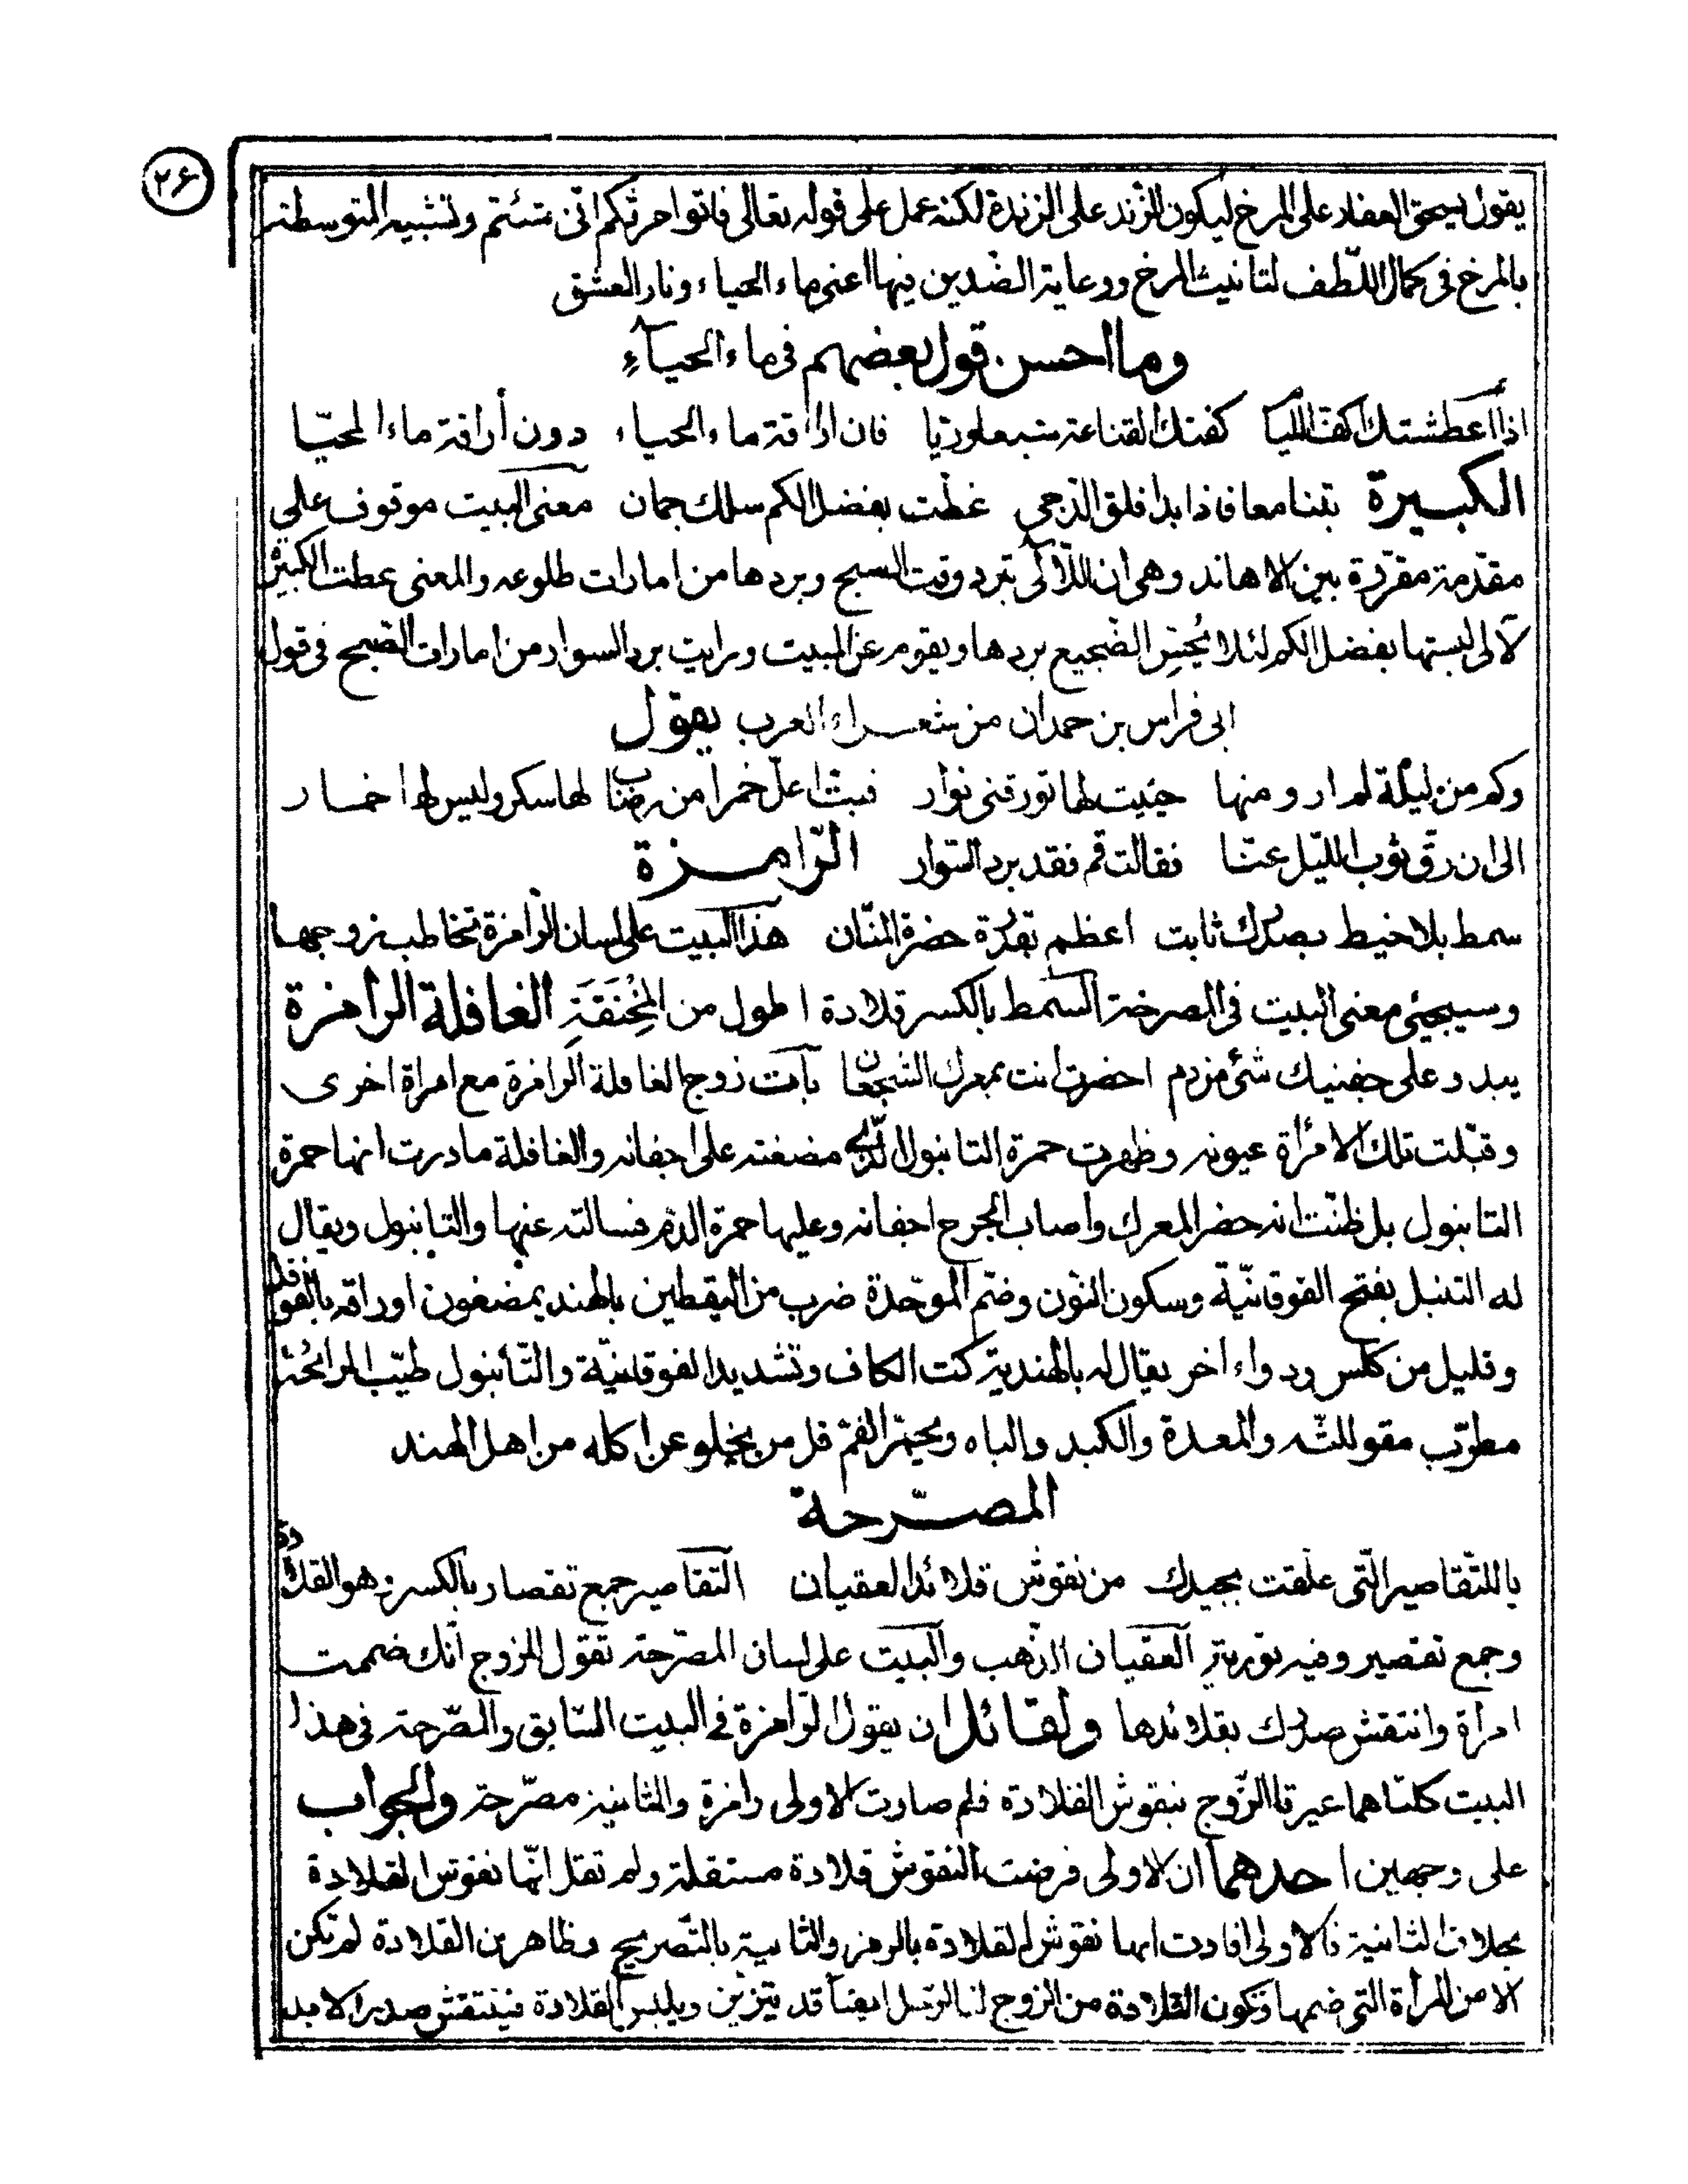 ۲۶
يقول يسحق العفار على المرخ ليكون الزند على الزندة لكنه عمل على قوله تعالى فاتوا حرثكم انّى شئتم وتشبيه المتوسطة
بالمرخ فى كمال اللّطف لتانيث المرخ ورعاية الضدين فيها اعنى ماء الحياء ونار العشق
وما احسن قول بعضهم فى ماء الحيآءِ
اذا اعطشتك اكف اللئام كفتك القناعة شبعا وريا فان اراقة ماء الحياء دون أراقة ماء المحيّا
الكبيرة بتنا معا فاذا بدا فلق الدّجى غطّت بفضل الكم سلك جمان معنى البيت موقوف على
مقدّمة مقرّرة بين الاهاند وهى ان اللآلى تبرد وقت الصبح وبردها من امارات طلوعه والمعنى غطت الكبيرة
لآلى لبستها بفضل الكم لئلا يُحِسّ الضّجيع بردها ويقوم عن المبيت ورايت برد السوار من امارات الصّبح فى قول
ابى فراس بن حمدان من شعراء العرب يقول
وكم من ليلة لم ارو منها حئيت لها تورقنى نوار فبتّ اعلّ خمرا من رضاب لها سكر وليس لها خمار
الى ان رقّ ثوب اللّيل عنّا فقالت قم فقد برد السّوار الرّامزة
سمط بلا خيط بصدرك ثابت اعظم بقدرة حضرة المنّان هذا البيت على لسان الرّامزة تخاطب زوجها
وسيجيئ معنى البيت فى المصرحة السّمط بالكسر قلادة اطول من المِخْنَقَةِ الغافلة الرامزة
يبدو على جفنيك شئ من دم احضرت انت بمعرك الشّجعان بآت زوج الغافلة الرامزة مع امراة اخرى
وقبّلت تلك الامرأة عيونه وظهرت حمرة التانبول الّذى مضغته على اجفانه والغافلة ما درت انها حمرة
التانبول بل ظنّت انه حضر المعرك واصاب الجرح اجفانه وعليها حمرة الدّم فسالته عنها والتانبول ويقال
له التنبل بفتح الفوقانيّة وسكون النّون وضمّ الموحّدة ضرب من اليقطين بالهند يمضغون اوراقه بالفوفل
وقليل من كلس ودواء اخر يقال له بالهندية كت الكاف وتشديد الفوقانيّة والتّانبول طيّب الرائحة
مطرّب مقو للثه والمعدة والكبد والباه ويحمّر الفمّ قل من يخلو عن اكله من اهل الهند
المصرّحة
يا للتّقاصير الّتى علّقت بجيدك من نقوش قلائد العقيان التّقاصير جمع تقصار بالكسر وهو القلادة
وجمع تقصير وفيه تورية العقيان الذّهب والبيت على لسان المصرّحة تقول للزوج انّك ضممت
امرأة وانتقش صدرك بقلائدها ولقائل ان يقول الرّامزة فى البيت السّابق والمصّرحة فى هذا
البيت كلتاهما عيرتا الزّوج بنقوش القلادة فلم صارت الاولى رامزة والثانية مصرّحة والجواب
على وجهين احدهما ان الاولى فرضت النّقوش قلادة مستقلة ولم تقل انّها نقوش القلادة
بخلاف الثانية فالاولى افادت انها نقوش القلادة بالرمز والثانية بالتّصريح وظاهر ان القلادة لم تكن
الا من المرأة التى ضمها وتكون القلادة من الزوج لنا الرّجل ايضاً قد يتزيّن ويلبس القلادة فينتقش صدره الا بد